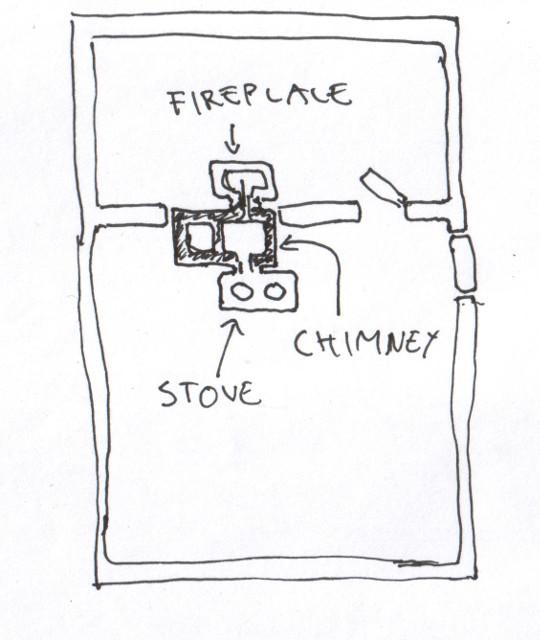 FIREPLACE
CHIMNEY
STOVE